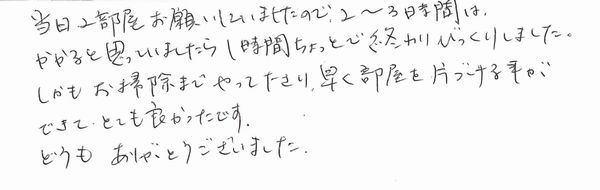 当日2部屋お願いしていましたので、2〜3時間は、
かかると思っていましたら1時間ちょっとで終わりびっくりしました。
しかもお掃除までやってたさり、早く部屋を片づける事が
できて、とても良かったです。
どうも ありがとうございました.